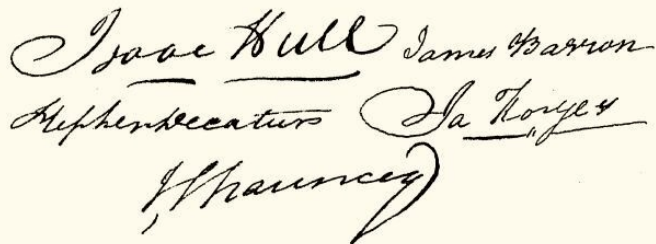 Isaac Hull James Barron
Stephen Decatur Ja
I Chauncey